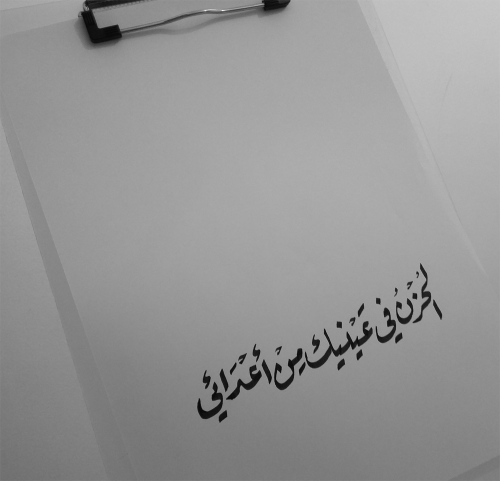 الحُزْنُ في عَينيك مِنْ أعْدَائي